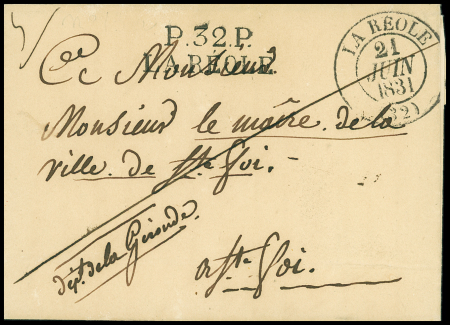 P.32.P.
LA RÉOLE
LA RÉOLE
21
JUIN
1831
(32)
A Monsieur
Monsieur le maire de la
ville de Ste foi. -
dépt. de la Gironde.
à Ste foi.